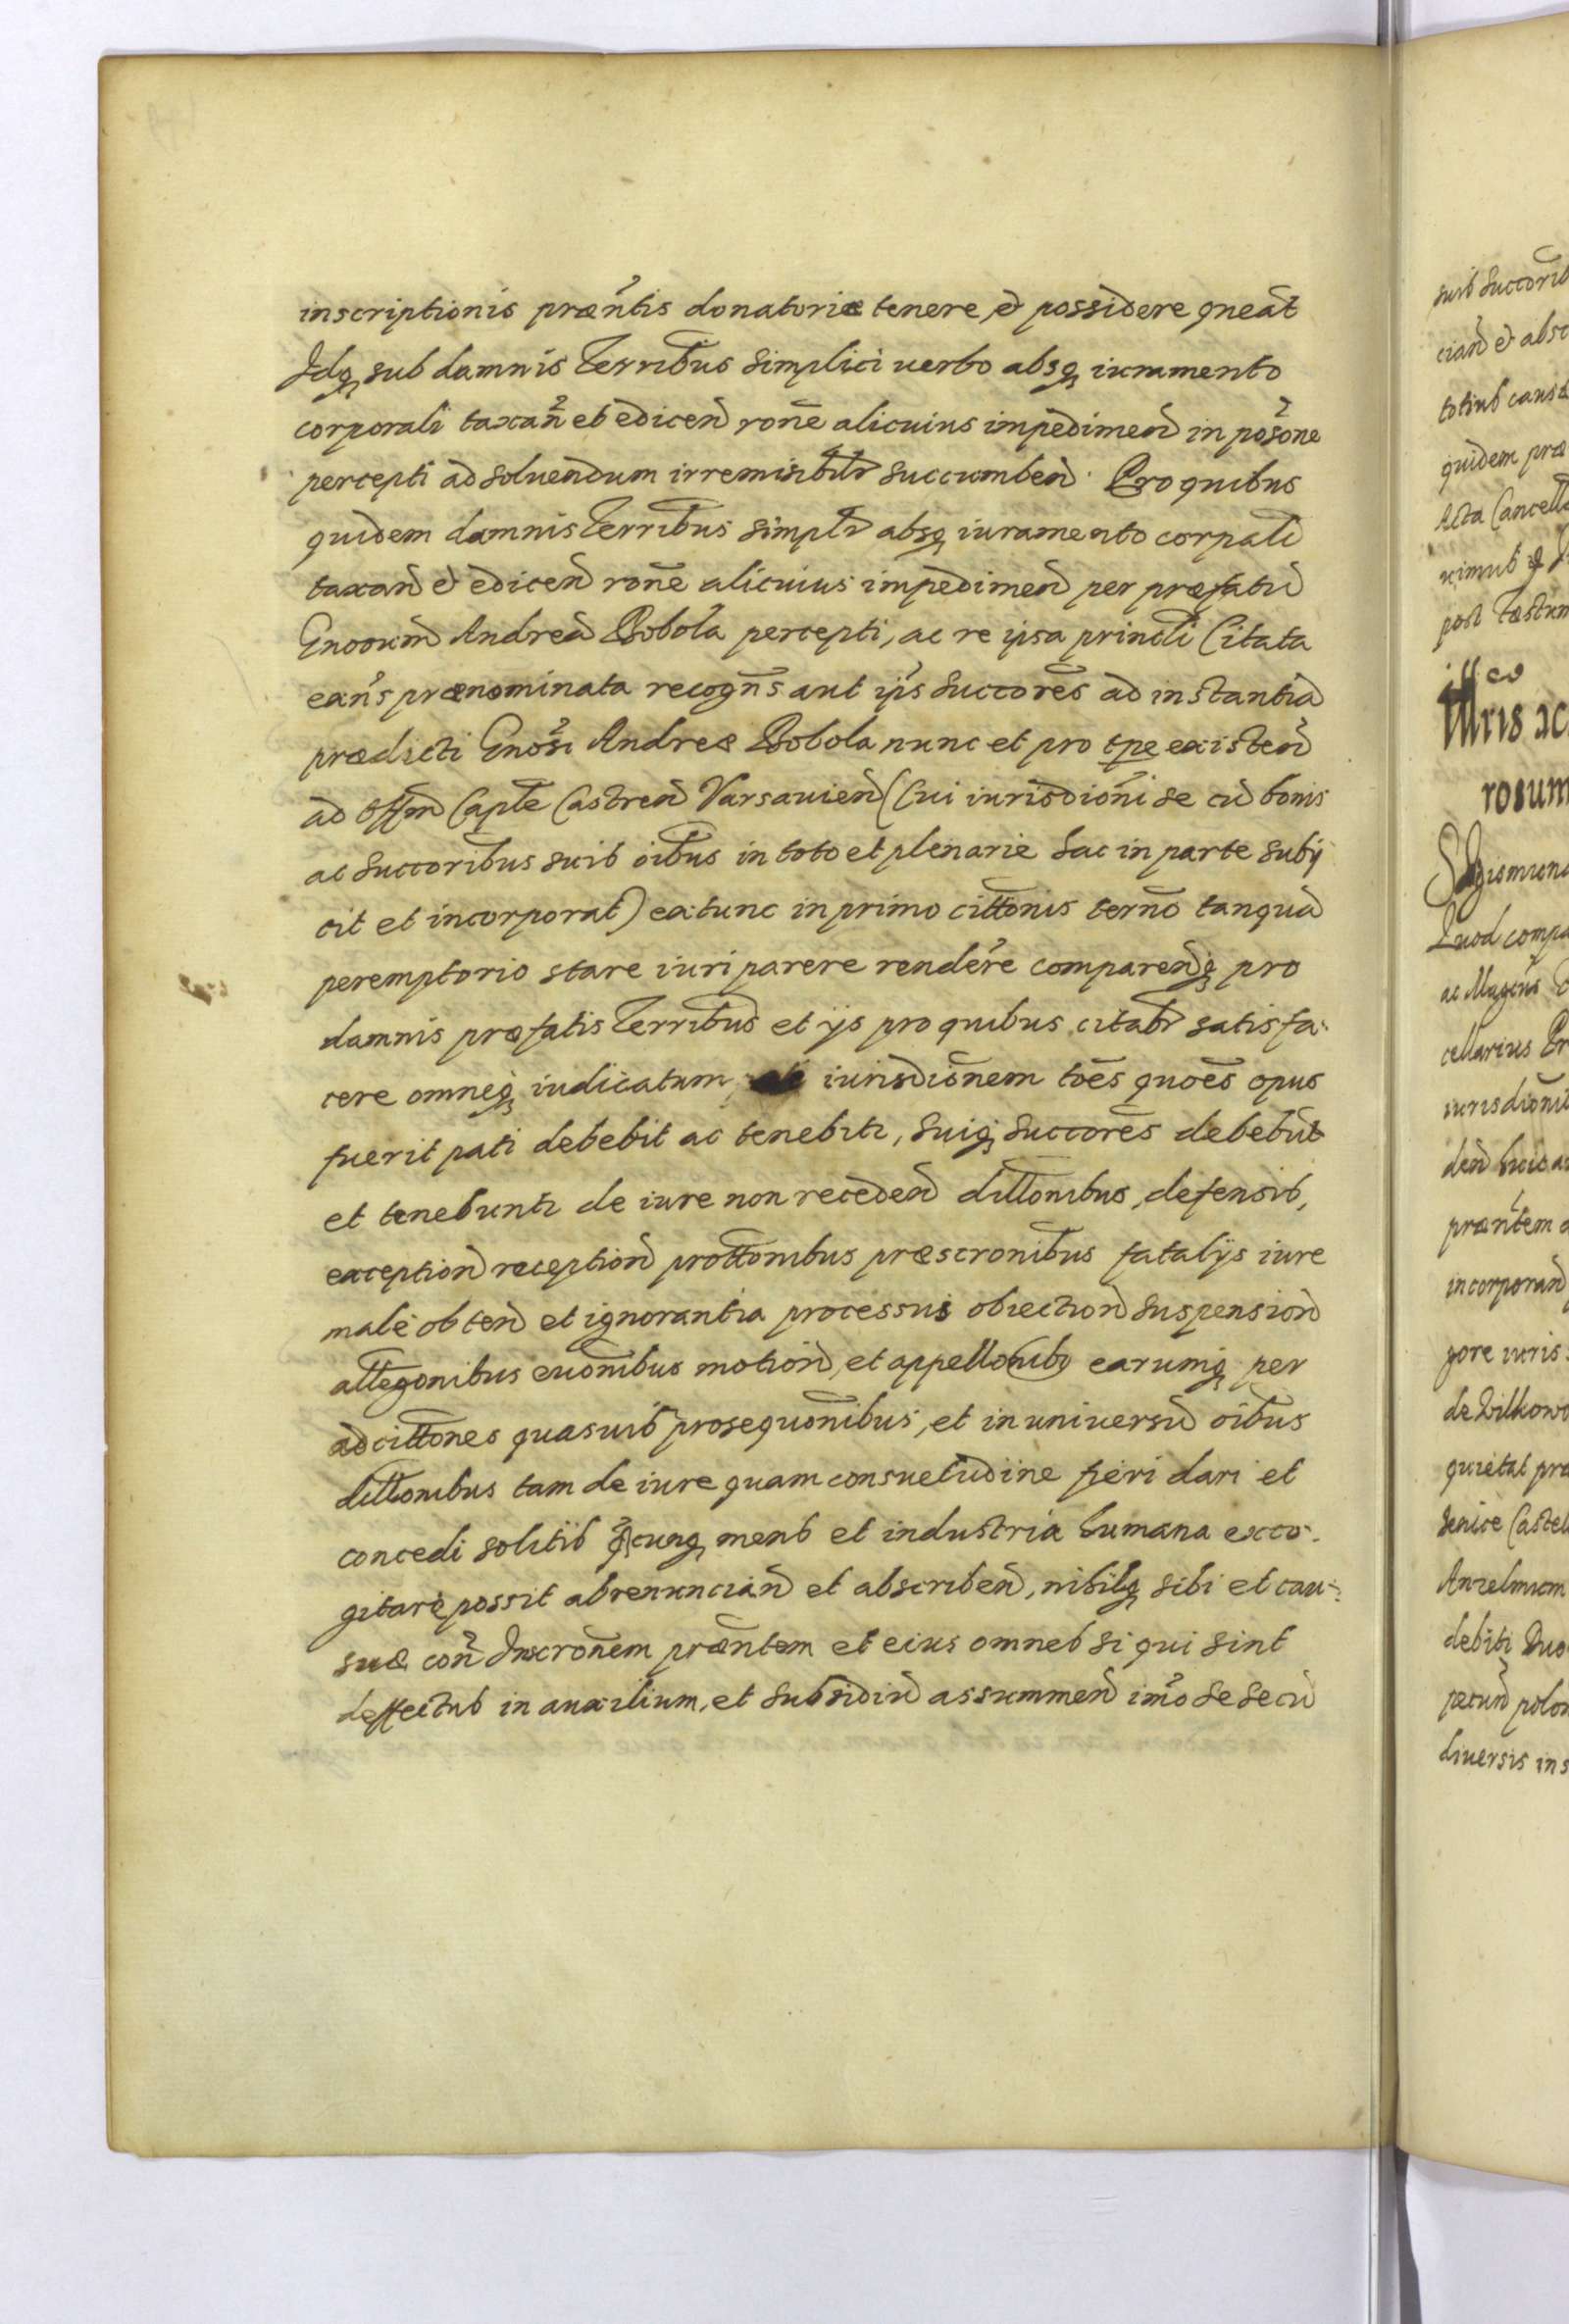 inscriptionis præntis donatoriæ tenere, et possidere queāt
Idq sub damnis Terribus simplici uerbo absq iuramento
corporali taxan et edicen rōne alicuius impedimen in possone
percepti ad soluendum irremisibilr succumben. Pro quibus
quidem damnis Terribus simplr absq iuramento corpali
taxan et edicen rōne alicuius impedimen per præfatū
Gnōrum Andreā Bobola percepti, ac re ipsa princli Citata
eans prænominata recogns aut ips succores ad instantiā
prædicti Gnosi Andreæ Bobola nunc et pro tpe existen
ad Offm Caple Castren Varsauien (Cui iurisdioni se cū bonis
ac succoribus suis oibus in toto et plenarie hac in parte subij
cit et incorporat) ex tunc in primo cittonis terno tanquā
peremptorio stare iuri parere rendere comparenq pro
damnis præfatis Terribus et ijs pro quibus citabr satisfa-
cere omneq iudicatum, iurisdionem toes quoes opus
fuerit pati debebit ac tenebitr, suiq succores debebūt
et tenebuntr de iure non receden dillonibus, defensib,
exception reception prottonibus præscronibus fatalijs iure
male obten et ignorantia processus obiection suspension
allegonibus euonibus motion, et appellonibs earumq per
ad cittones quasuis prosequonibus, et in uniuersū oibus
dillonibus tam de iure quam consuetudine fieri dari et
concedi solitis qcunq mens et industria humana exco-
gitare possit abrenuncian et abscriben, nihilq sibi et cau-
suæ con Inscronem præntem et eius omnes si qui sint
deffectus in auxilium, et subsidiū assummen imo se secū
suis succorib
cian et absc
totius causæ
quidem præ
Acta Cancella
post
rosum
Quod compa
cellarius
iurisdionis
den huic a
præntem
incorporan
gore iuris
de Wilkowo
quietat præ
Anzelmum
debiti Duo
diuersis ins